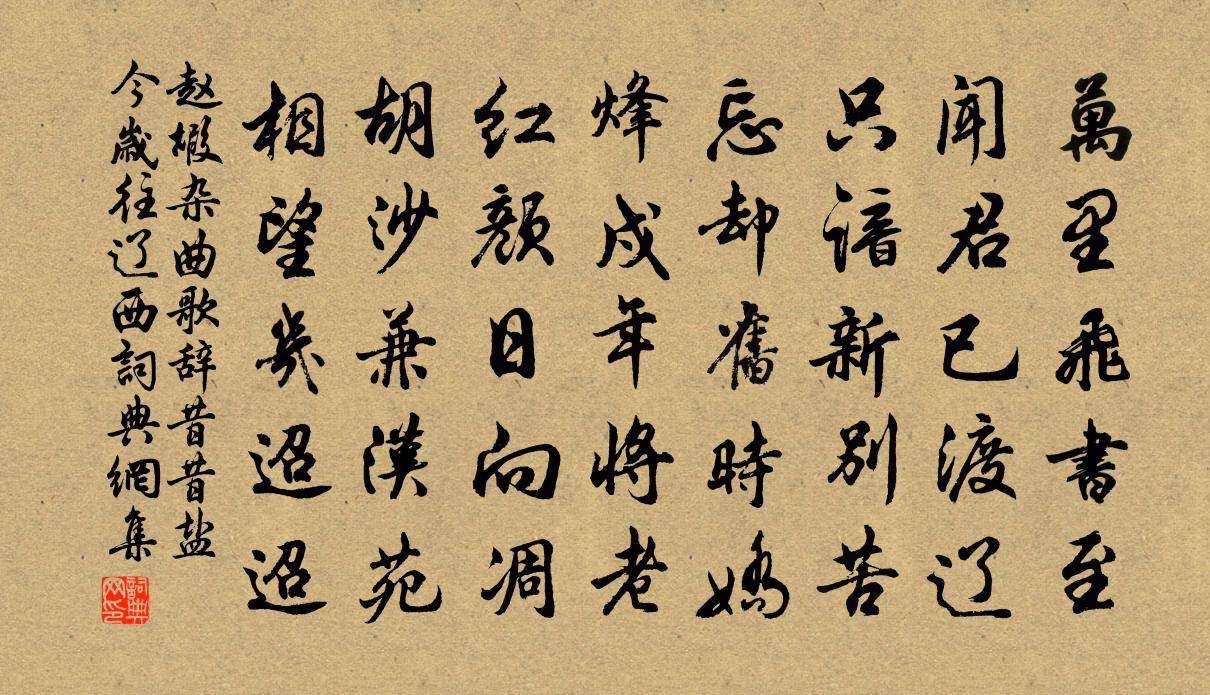 萬里飛書至
闻君已渡辽
只諳新别苦
忘却舊時嬌
烽戍年将老
红顏日向凋
胡沙兼漢苑
相望幾迢迢
赵嘏杂曲歌辞昔昔盐
今歲往辽西詞典網集
詞典
网印